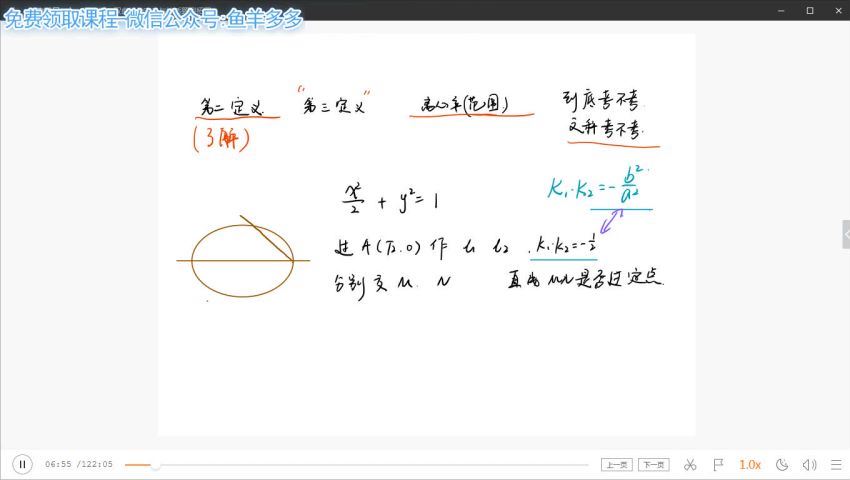 免费领取课程-微信公众号:鱼羊多多
第二定义 "第三定义" 离心率(范围) 到底考不考
(了解) 文科考不考
x²/2 + y² = 1 K₁·K₂ = -b²/a²
过 A(√2,0) 作 l₁ l₂ . K₁·K₂ = -1/2
分别交 M. N 直线MN是否过定点.
06:55 /122:05 上一页 下一页 1.0x